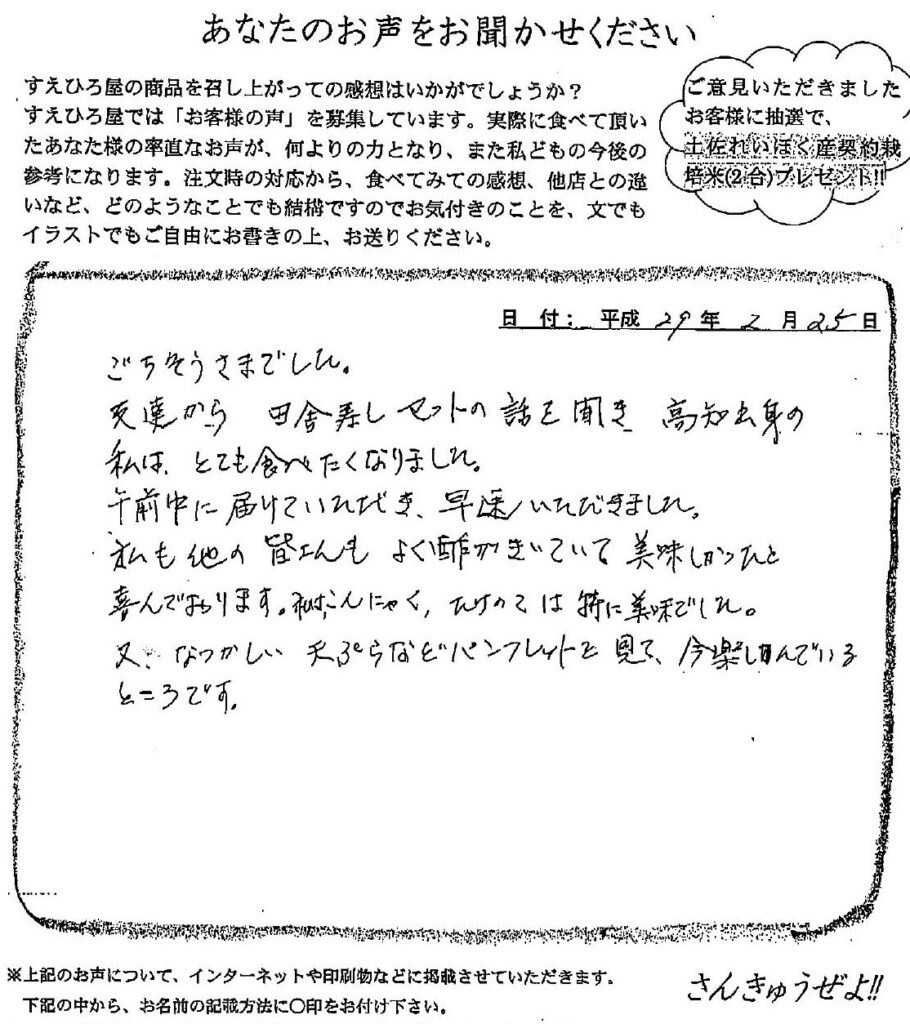 あなたのお声をお聞かせください
すえひろ屋の商品を召し上がっての感想はいかがでしょうか？
すえひろ屋では「お客様の声」を募集しています。実際に食べて頂い
たあなた様の率直なお声が、何よりの力となり、また私どもの今後の
参考になります。注文時の対応から、食べてみての感想、他店との違
いなど、どのようなことでも結構ですのでお気付きのことを、文でも
イラストでもご自由にお書きの上、お送りください。
ご意見いただきました
お客様に抽選で、
土佐れいほく産契約栽
培米(2合)プレゼント!!
日 付： 平成 29 年 2 月 25 日
ごちそうさまでした。
友達から 田舎寿しセットの話を聞き 高知出身の
私は、とても食べたくなりました。
午前中に届けていただき、早速いただきました。
私も他の皆さんも よく酢がきいていて 美味しかったと
喜んでおります。私はこんにゃく、たけのこは特に美味でした。
又、なつかしい 天ぷらなどパンフレットを見て、今楽しんでいる
ところです。
※上記のお声について、インターネットや印刷物などに掲載させていただきます。
下記の中から、お名前の記載方法に〇印をお付け下さい。
さんきゅうぜよ!!